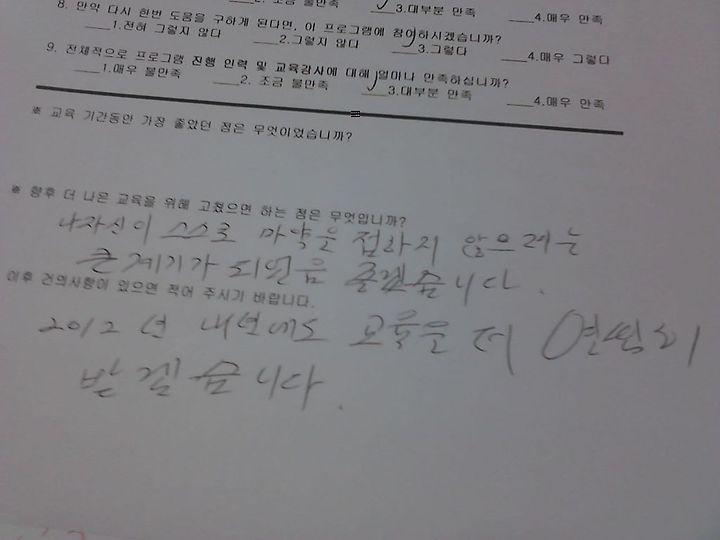 2. 조금 불만족 ✓3.대부분 만족 ___4.매우 만족
8. 만약 다시 한번 도움을 구하게 된다면, 이 프로그램에 참여하시겠습니까?
___1.전혀 그렇지 않다 ___2.그렇지 않다 ✓3.그렇다 ___4.매우 그렇다
9. 전체적으로 프로그램 진행 인력 및 교육강사에 대해 얼마나 만족하십니까?
___1.매우 불만족 ___2. 조금 불만족 ✓3.대부분 만족 ___4.매우 만족
※ 교육 기간동안 가장 좋았던 점은 무엇이었습니까?
※ 향후 더 나은 교육을 위해 고쳤으면 하는 점은 무엇입니까?
나자신이 스스로 마약을 접하지 않으려는
큰계기가 되었음 좋겠습니다.
이후 건의사항이 있으면 적어 주시기 바랍니다.
2012년 내년에도 교육을 더 열씸히
받겠습니다.